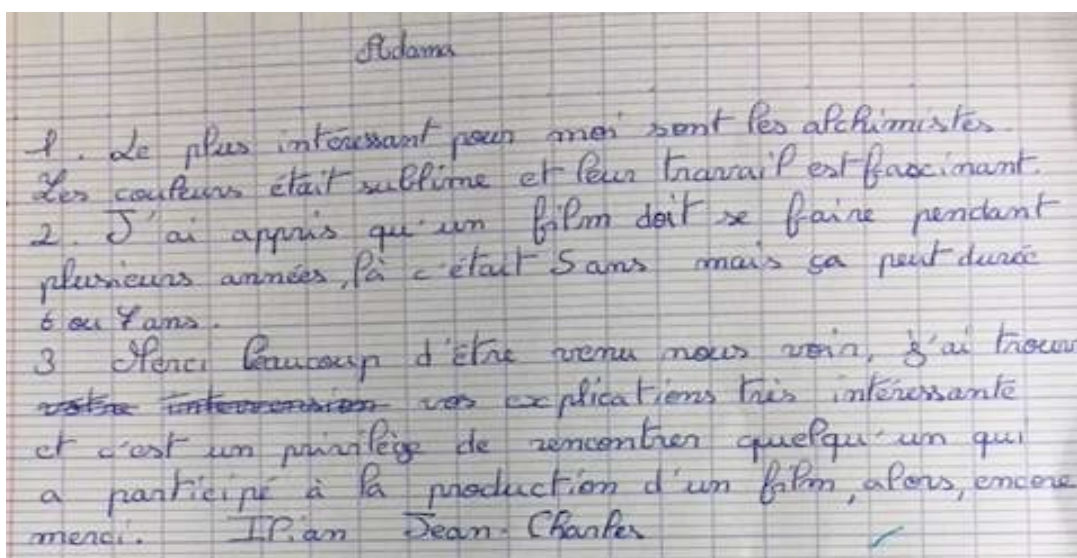 Adama
1. Le plus intéressant pour moi sont les alchimistes.
Les couleurs était sublime et leur travail est fascinant.
2. J'ai appris qu'un film doit se faire pendant
plusieurs années, là c'était 5 ans mais ça peut durée
6 ou 7 ans.
3 Merci beaucoup d'être venu nous voir, j'ai trouv
votre intervension vos explications très intéressante
et c'est un privilège de rencontrer quelqu'un qui
a participé à la production d'un film, alors, encore
merci. Ilian Jean-Charles